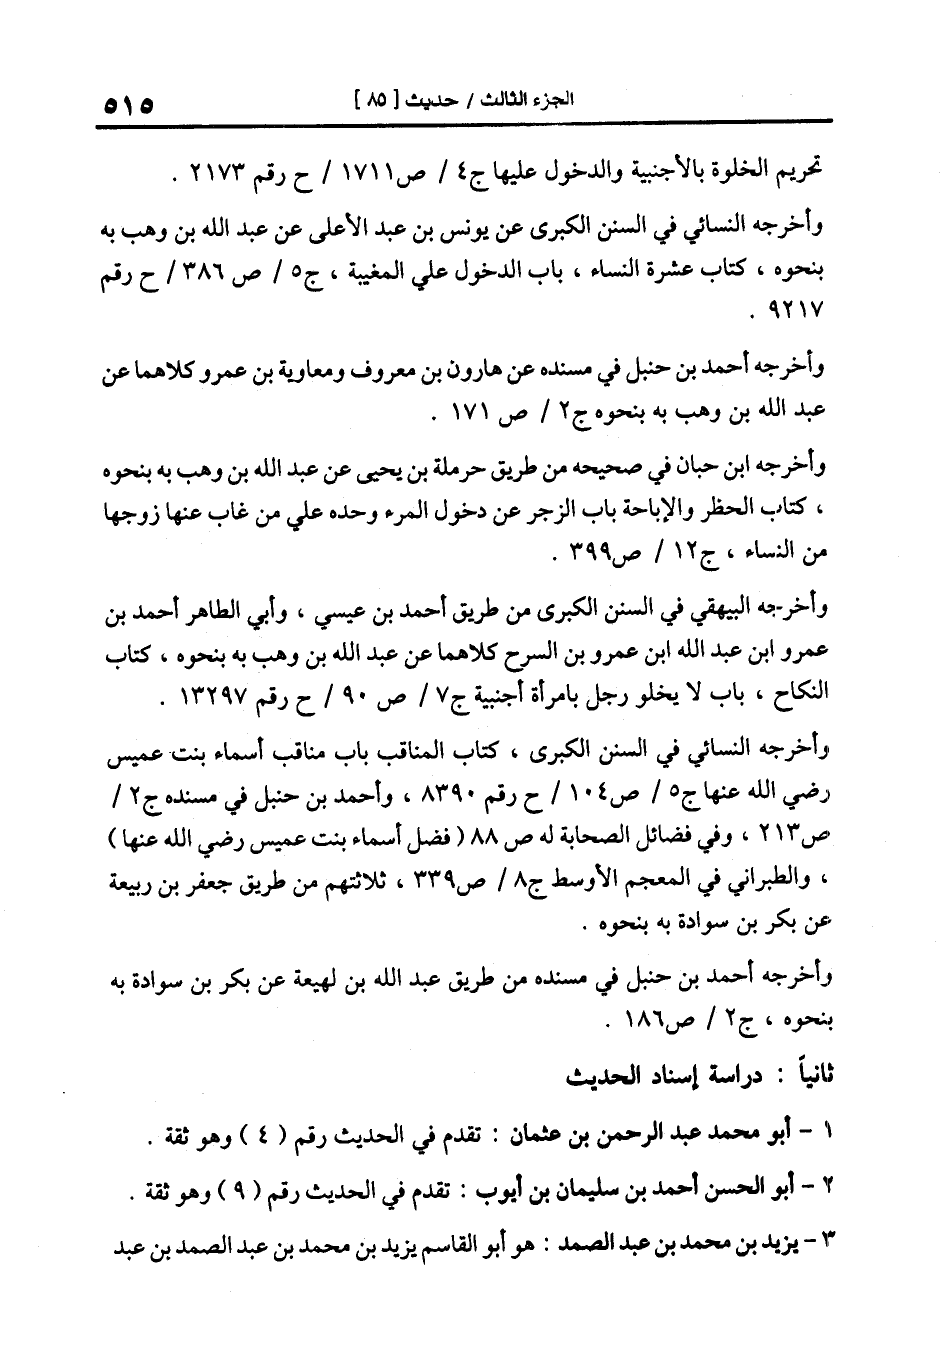 الجزء الثالث / حديث [ ٨٥ ] ٥١٥
تحريم الخلوة بالأجنبية والدخول عليها ج٤ / ص١٧١١ / ح رقم ٢١٧٣ .
وأخرجه النسائي في السنن الكبرى عن يونس بن عبد الأعلى عن عبد الله بن وهب به
بنحوه ، كتاب عشرة النساء ، باب الدخول علي المغيبة ، ج٥ / ص ٣٨٦ / ح رقم
٩٢١٧ .
وأخرجه أحمد بن حنبل في مسنده عن هارون بن معروف ومعاوية بن عمرو كلاهما عن
عبد الله بن وهب به بنحوه ج٢ / ص ١٧١ .
وأخرجه ابن حبان في صحيحه من طريق حرملة بن يحيى عن عبد الله بن وهب به بنحوه
، كتاب الحظر والإباحة باب الزجر عن دخول المرء وحده علي من غاب عنها زوجها
من النساء ، ج١٢ / ص٣٩٩ .
وأخرجه البيهقي في السنن الكبرى من طريق أحمد بن عيسي ، وأبي الطاهر أحمد بن
عمرو ابن عبد الله ابن عمرو بن السرح كلاهما عن عبد الله بن وهب به بنحوه ، كتاب
النكاح ، باب لا يخلو رجل بامرأة أجنبية ج٧ / ص ٩٠ / ح رقم ١٣٢٩٧ .
وأخرجه النسائي في السنن الكبرى ، كتاب المناقب باب مناقب أسماء بنت عميس
رضي الله عنها ج٥ / ص١٠٤ / ح رقم ٨٣٩٠ ، وأحمد بن حنبل في مسنده ج٢ /
ص٢١٣ ، وفي فضائل الصحابة له ص ٨٨ ( فضل أسماء بنت عميس رضي الله عنها )
، والطبراني في المعجم الأوسط ج٨ / ص٣٣٩ ، ثلاثتهم من طريق جعفر بن ربيعة
عن بكر بن سوادة به بنحوه .
وأخرجه أحمد بن حنبل في مسنده من طريق عبد الله بن لهيعة عن بكر بن سوادة به
بنحوه ، ج٢ / ص١٨٦ .
ثانياً : دراسة إسناد الحديث
١ - أبو محمد عبد الرحمن بن عثمان : تقدم في الحديث رقم ( ٤ ) وهو ثقة .
٢ - أبو الحسن أحمد بن سليمان بن أيوب : تقدم في الحديث رقم ( ٩ ) وهو ثقة .
٣ - يزيد بن محمد بن عبد الصمد : هو أبو القاسم يزيد بن محمد بن عبد الصمد بن عبد